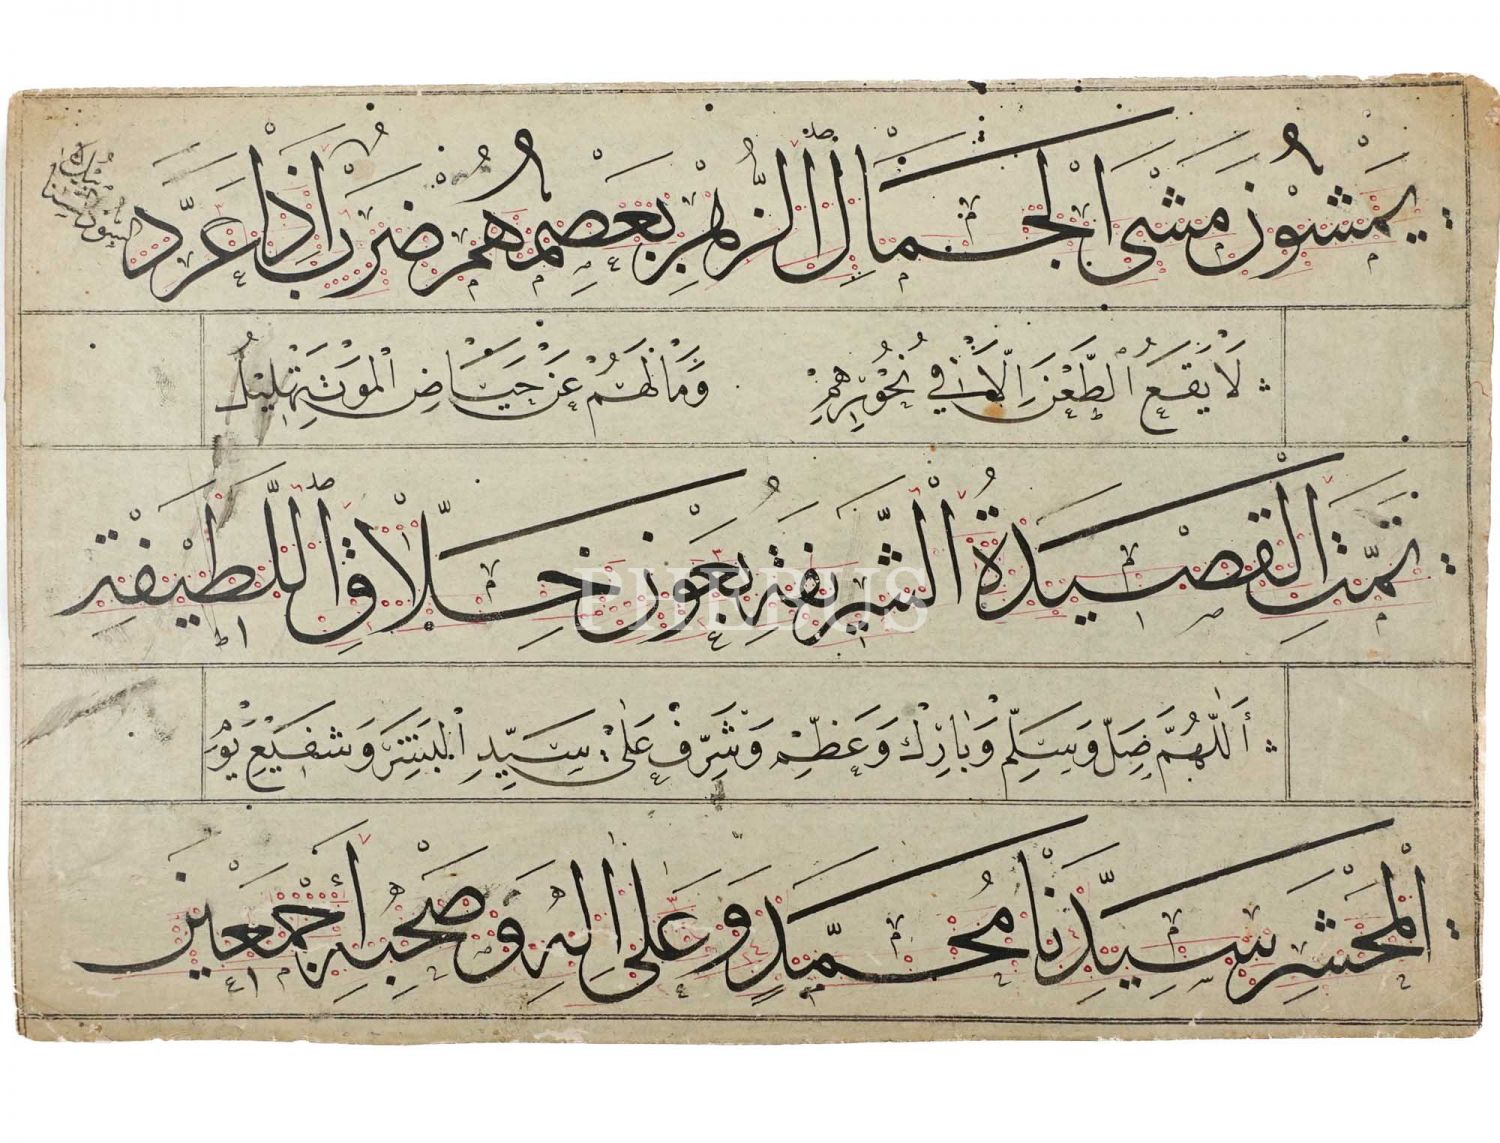 يَمْشُونَ مَشْىَ الْجِمَالِ الزُّهْرِ يَعْصِمُهُمْ ضَرْبٌ اِذَا عَرَّدَ
السُّودُ التَّنَابِيلُ
لَا يَقَعُ الطَّعْنُ اِلَّا فِي نُحُورِهِمْ وَمَا لَهُمْ عَنْ حِيَاضِ الْمَوْتِ تَهْلِيلُ
تَمَّتِ الْقَصِيدَةُ الشَّرِيفَةِ بِعَوْنِ خَلَّاقِ اللَّطِيفَةِ
PHEBUS
اَللّٰهُمَّ صَلِّ وَسَلِّمْ وَبَارِكْ وَعَظِّمْ وَشَرِّفْ عَلٰى سَيِّدِ الْبَشَرِ وَشَفِيعِ يَوْمِ
الْمَحْشَرِ سَيِّدِنَا مُحَمَّدٍ وَعَلٰى اٰلِهِ وَصَحْبِهِ أَجْمَعِينَ